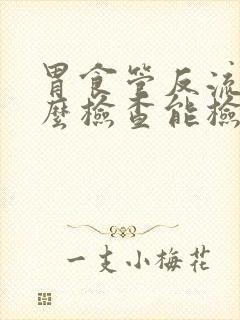 胃食管反流
麼檢查能檢
一支小梅花